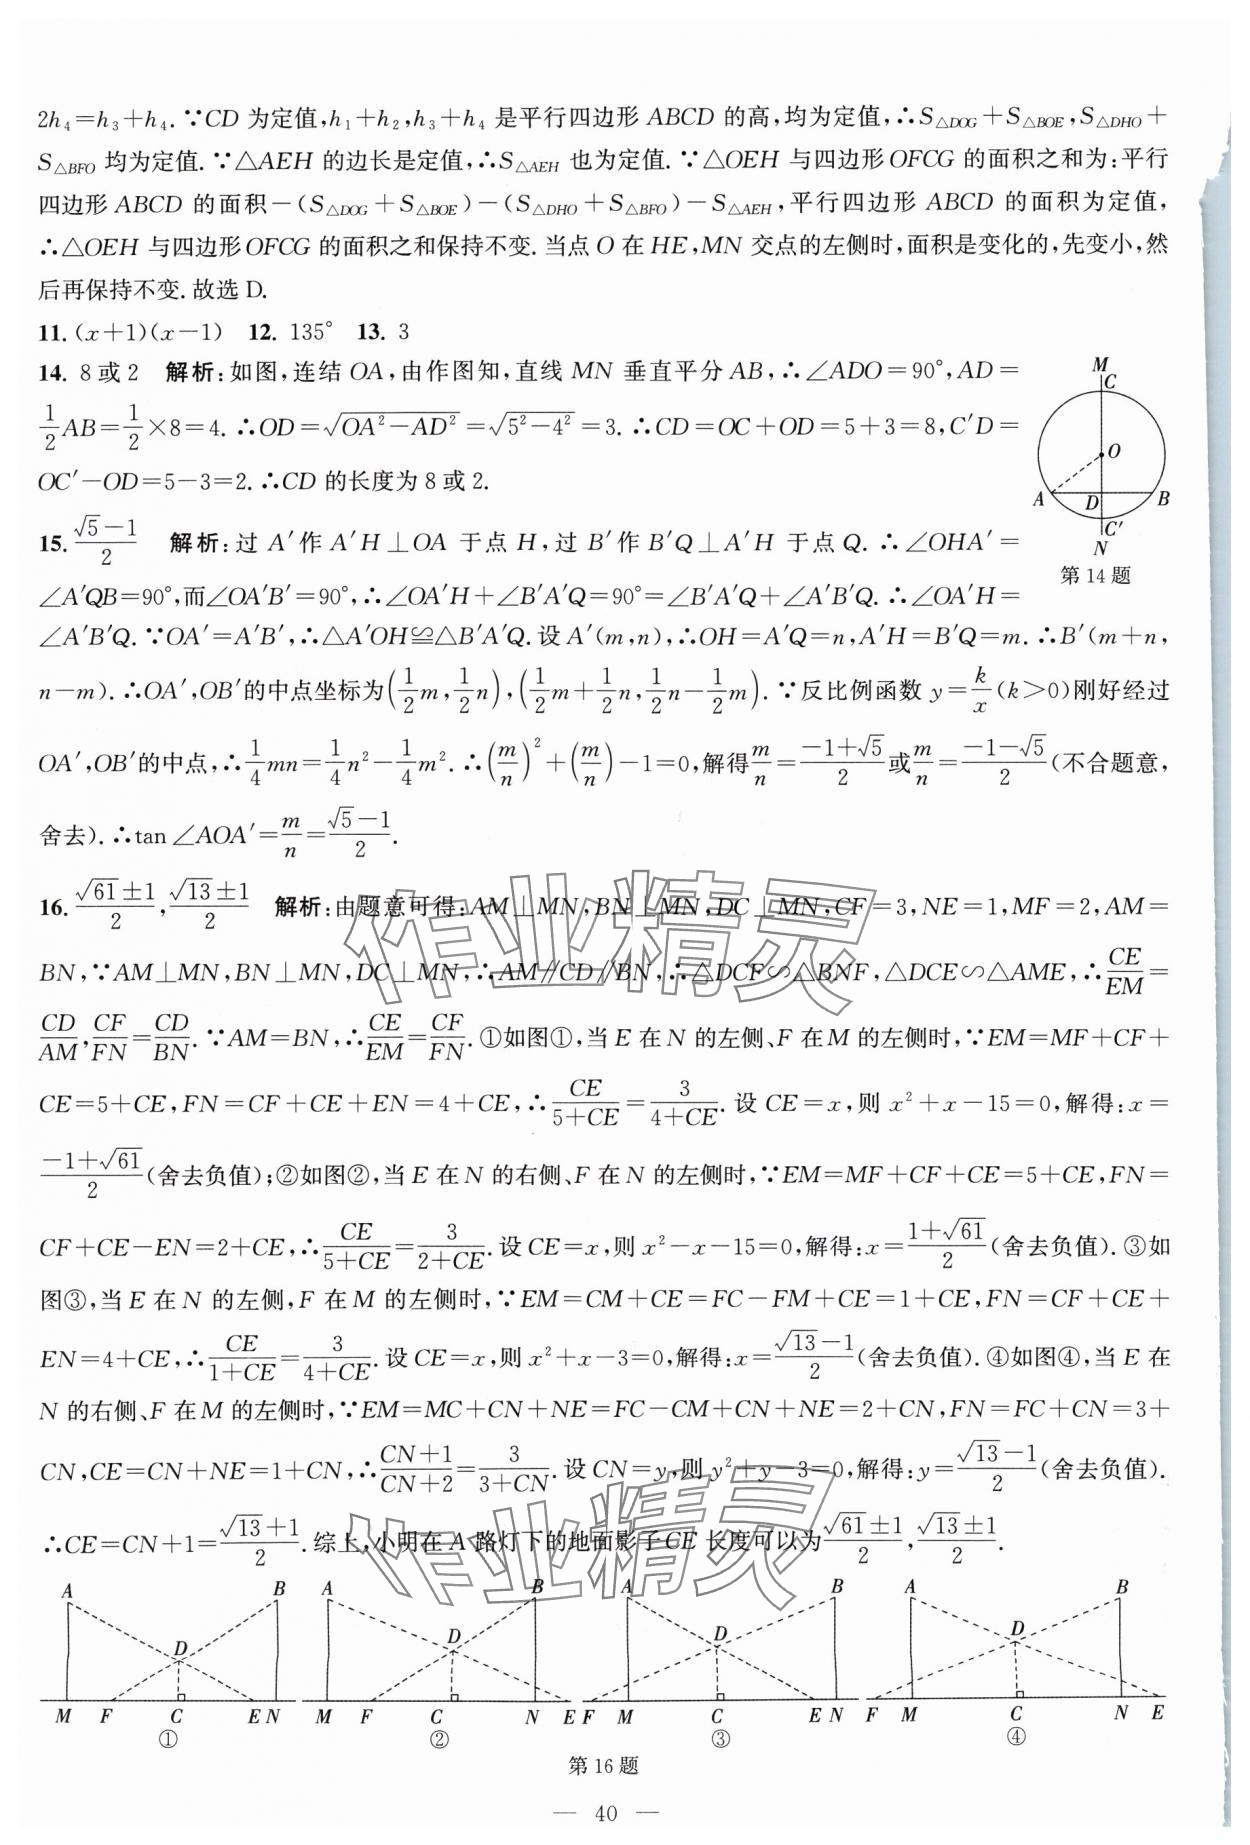 2h₄=h₃+h₄. ∵CD 为定值,h₁+h₂,h₃+h₄ 是平行四边形 ABCD 的高,均为定值,∴S△DOG+S△BOE,S△DHO+
S△BFO 均为定值. ∵△AEH 的边长是定值,∴S△AEH 也为定值. ∵△OEH 与四边形 OFCG 的面积之和为:平行
四边形 ABCD 的面积-(S△DOG+S△BOE)-(S△DHO+S△BFO)-S△AEH,平行四边形 ABCD 的面积为定值,
∴△OEH 与四边形 OFCG 的面积之和保持不变. 当点 O 在 HE,MN 交点的左侧时,面积是变化的,先变小,然
后再保持不变. 故选 D.
11. (x+1)(x-1) 12. 135° 13. 3
14. 8 或 2 解析:如图,连结 OA,由作图知,直线 MN 垂直平分 AB,∴∠ADO=90°,AD=
1/2 AB=1/2×8=4. ∴OD=√(OA²-AD²)=√(5²-4²)=3. ∴CD=OC+OD=5+3=8,C′D=
OC′-OD=5-3=2. ∴CD 的长度为 8 或 2.
M
C
O
A
D
B
C′
N
第 14 题
15. (√5-1)/2 解析:过 A′作 A′H⊥OA 于点 H,过 B′作 B′Q⊥A′H 于点 Q. ∴∠OHA′=
∠A′QB=90°,而∠OA′B′=90°,∴∠OA′H+∠B′A′Q=90°=∠B′A′Q+∠A′B′Q. ∴∠OA′H=
∠A′B′Q. ∵OA′=A′B′,∴△A′OH≌△B′A′Q. 设 A′(m,n),∴OH=A′Q=n,A′H=B′Q=m. ∴B′(m+n,
n-m). ∴OA′,OB′的中点坐标为(1/2 m,1/2 n),(1/2 m+1/2 n,1/2 n-1/2 m). ∵反比例函数 y=k/x(k>0)刚好经过
OA′,OB′的中点,∴1/4 mn=1/4 n²-1/4 m². ∴(m/n)²+(m/n)-1=0,解得m/n=(-1+√5)/2或m/n=(-1-√5)/2(不合题意,
舍去). ∴tan∠AOA′=m/n=(√5-1)/2.
16. (√61±1)/2,(√13±1)/2 解析:由题意可得:AM⊥MN,BN⊥MN,DC⊥MN,CF=3,NE=1,MF=2,AM=
BN,∵AM⊥MN,BN⊥MN,DC⊥MN,∴AM∥CD∥BN,∴△DCF∽△BNF,△DCE∽△AME,∴CE/EM=
CD/AM,CF/FN=CD/BN. ∵AM=BN,∴CE/EM=CF/FN. ①如图①,当 E 在 N 的左侧、F 在 M 的左侧时,∵EM=MF+CF+
CE=5+CE,FN=CF+CE+EN=4+CE,∴CE/(5+CE)=3/(4+CE). 设 CE=x,则 x²+x-15=0,解得:x=
(-1+√61)/2(舍去负值);②如图②,当 E 在 N 的右侧、F 在 N 的左侧时,∵EM=MF+CF+CE=5+CE,FN=
CF+CE-EN=2+CE,∴CE/(5+CE)=3/(2+CE). 设 CE=x,则 x²-x-15=0,解得:x=(1+√61)/2(舍去负值). ③如
图③,当 E 在 N 的左侧,F 在 M 的左侧时,∵EM=CM+CE=FC-FM+CE=1+CE,FN=CF+CE+
EN=4+CE,∴CE/(1+CE)=3/(4+CE). 设 CE=x,则 x²+x-3=0,解得:x=(√13-1)/2(舍去负值). ④如图④,当 E 在
N 的右侧、F 在 M 的左侧时,∵EM=MC+CN+NE=FC-CM+CN+NE=2+CN,FN=FC+CN=3+
CN,CE=CN+NE=1+CN,∴(CN+1)/(CN+2)=3/(3+CN). 设 CN=y,则 y²+y-3=0,解得:y=(√13-1)/2(舍去负值).
∴CE=CN+1=(√13+1)/2. 综上,小明在 A 路灯下的地面影子 CE 长度可以为(√61±1)/2,(√13±1)/2.
A B A B A B A B
D D D D
M F C E N M F C N E F M C E N F M C N E
① ② ③ ④
第 16 题
— 40 —
作业精灵
作业精灵